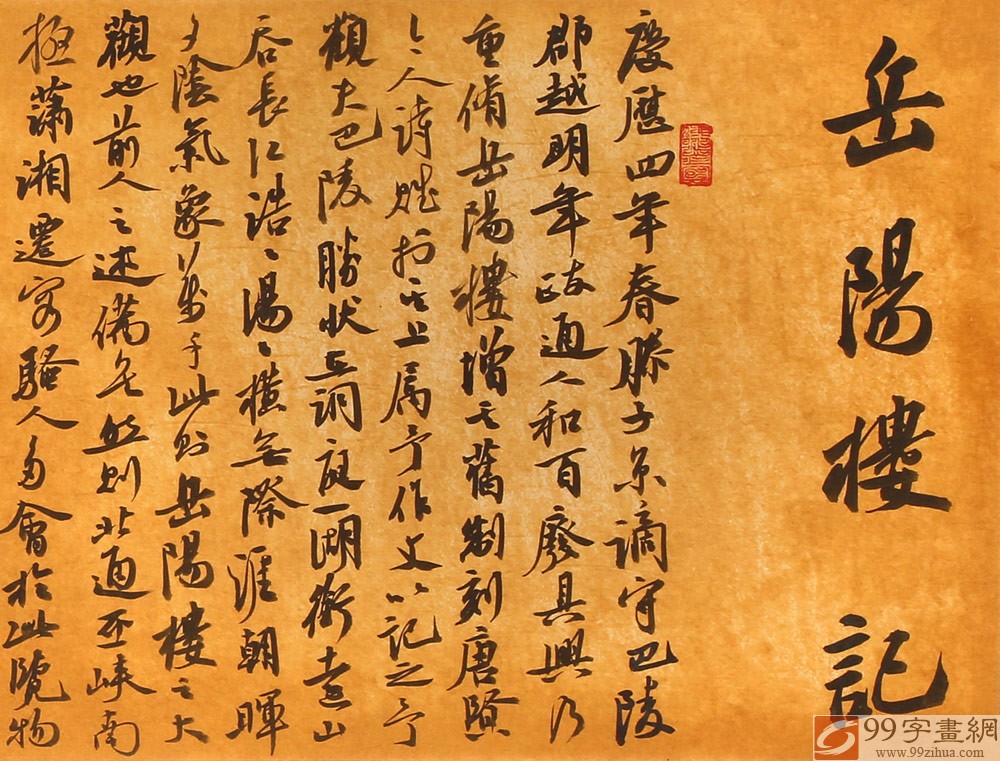 岳陽樓記
慶曆四年春滕子京謫守巴陵
郡越明年政通人和百廢具興乃
重脩岳陽樓增其舊制刻唐賢
今人詩賦於其上屬予作文以記之予
觀夫巴陵勝狀在洞庭一湖銜遠山
吞長江浩浩湯湯橫無際涯朝暉
夕陰氣象萬千此則岳陽樓之大
觀也前人之述備矣然則北通巫峽南
極瀟湘遷客騷人多會於此覽物
99字畫網
www.99zihua.com